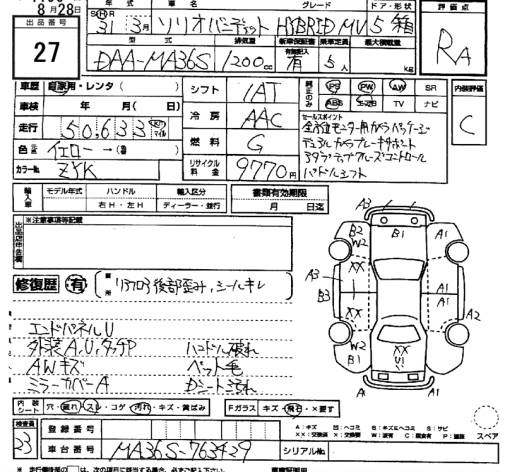 8月28日
出品番号
27
年式 車名 グレード ドア・形状
31年 3月 ソリオバンディット HYBRID MV 5 箱
型式 排気量 新車保証書 乗車定員 最大積載量
DAA-MA36S 1200cc 有 5人 kg
評価点
RA
車歴 自家用・レンタ( )
車検 年 月( 日)
走行 50,633 km マイル
色 イエロー →( 番)
カラーNo. ZYK
シフト IAT
冷房 AAC
燃料 G
リサイクル料金 9770円
純正のみ PS PW AW SR
ABS エアB TV ナビ
内装評価
C
セールスポイント
全方位モニター用カメラパッケージ
デュアルカメラブレーキサポート
アダプティブクルーズコントロール
パドルシフト
輸入車 モデル年式 ハンドル 輸入区分
年 右H・左H ディーラー・並行
書類有効期限
月 日迄
※注意事項等記載
修復歴 有
箇所 後部歪み,シールキレ
エンドパネルU
外装A,U,タッチP ハンドル破れ
AWキズ ペット毛
ミラーカバーA Dシート汚れ
A3 A3
B2 B1 A1
W2
XX
A3
B3
A1
A1
XX
A2
W2
XX
U1
B1
A1
A3
内装シート 穴・破れ・スレ・コゲ・汚れ・キズ・黄ばみ
Fガラス キズ・飛石・X要す
A:キズ U:ヘコミ B:キズとヘコミ S:サビ
XX:交換済 X:要交換 W:補修 C:腐食 P:塗装
スペア
検査員
23
登録番号
車台番号 MA36S-763429
シリアルNo.